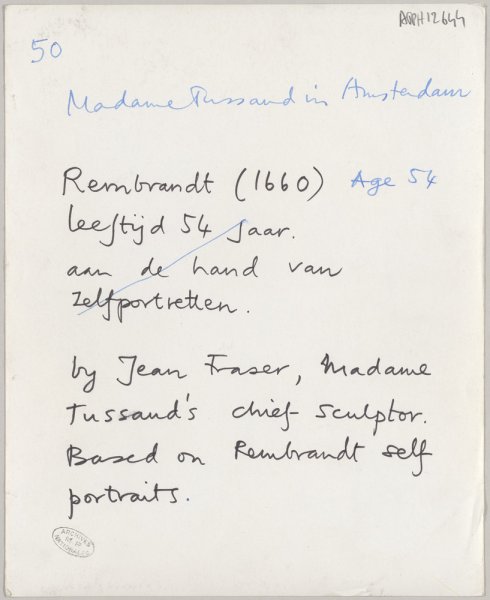 ARPH12644
50
Madame Tussaud in Amsterdam
Rembrandt (1660) Age 54
leeftijd 54 jaar.
aan de hand van
zelfportretten.
by Jean Fraser, Madame
Tussaud's chief sculptor.
Based on Rembrandt self
portraits.
ARCHIVES
NATIONALES